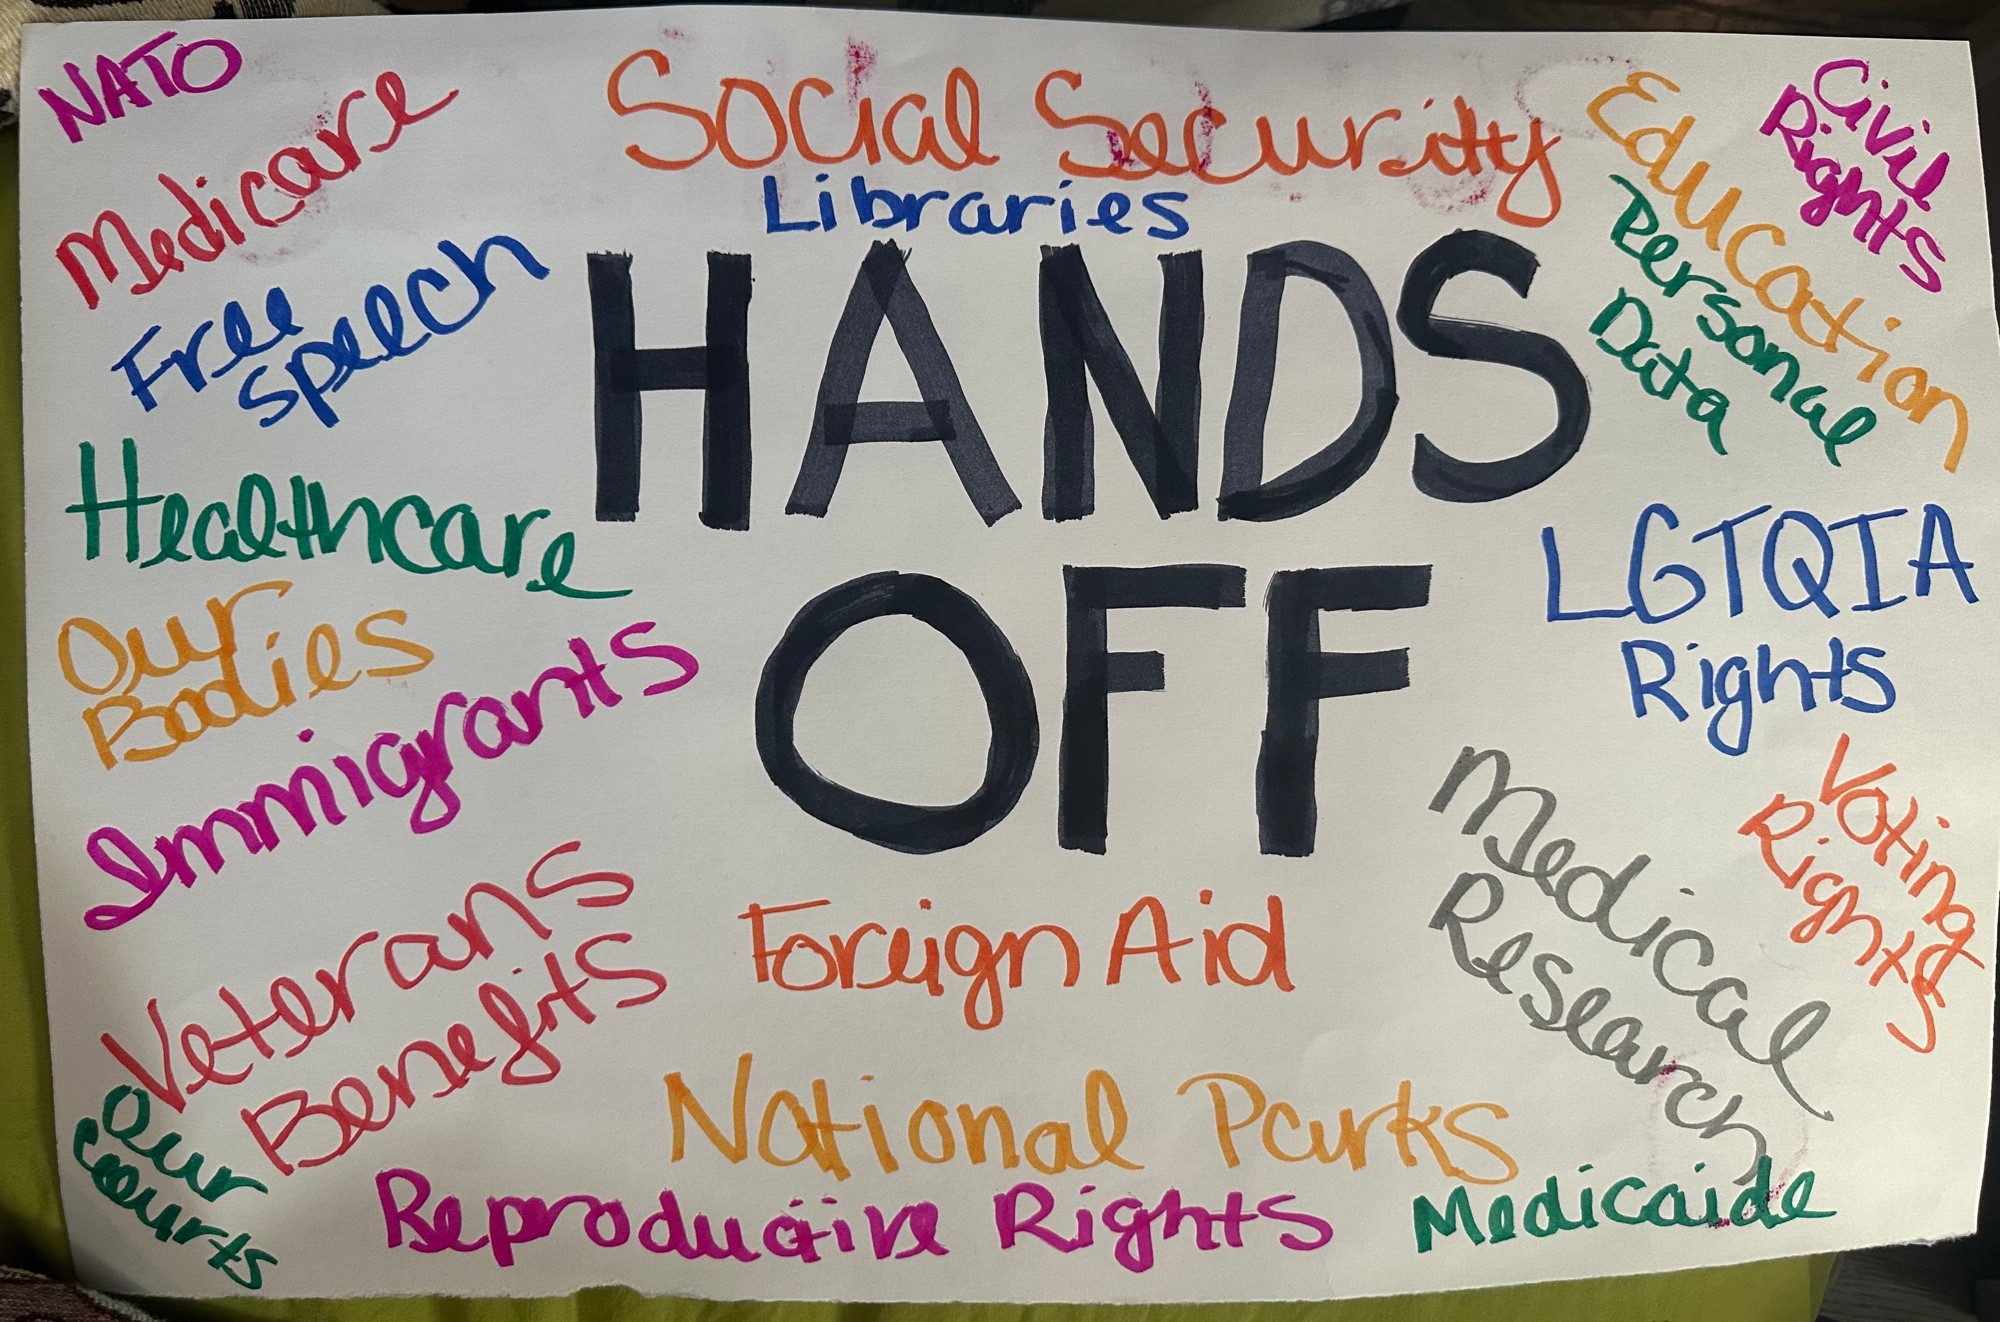 NATO
Medicare
Free
Speech
Healthcare
Our
Bodies
Immigrants
Veterans
Benefits
Our
Courts
Social Security
Libraries
HANDS
OFF
Foreign Aid
National Parks
Reproductive Rights
Civil
Rights
Education
Personal
Data
LGTQIA
Rights
Voting
Rights
Medical
Research
Medicaide